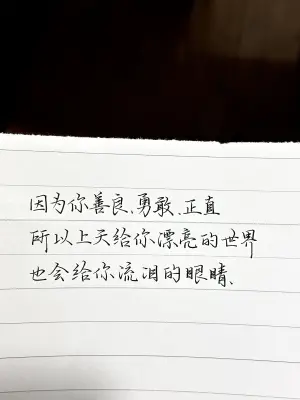 因为你善良、勇敢、正直
所以上天给你漂亮的世界
也会给你流泪的眼睛、